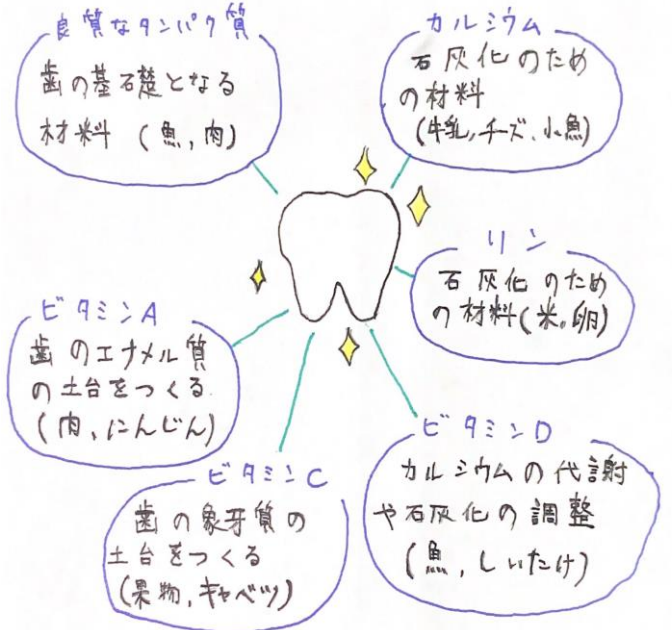 良質なタンパク質
歯の基礎となる
材料（魚,肉）
カルシウム
石灰化のため
の材料
（牛乳,チーズ,小魚）
リン
石灰化のため
の材料（米,卵）
ビタミンA
歯のエナメル質
の土台をつくる
（肉,にんじん）
ビタミンC
歯の象牙質の
土台をつくる
（果物,キャベツ）
ビタミンD
カルシウムの代謝
や石灰化の調整
（魚,しいたけ）